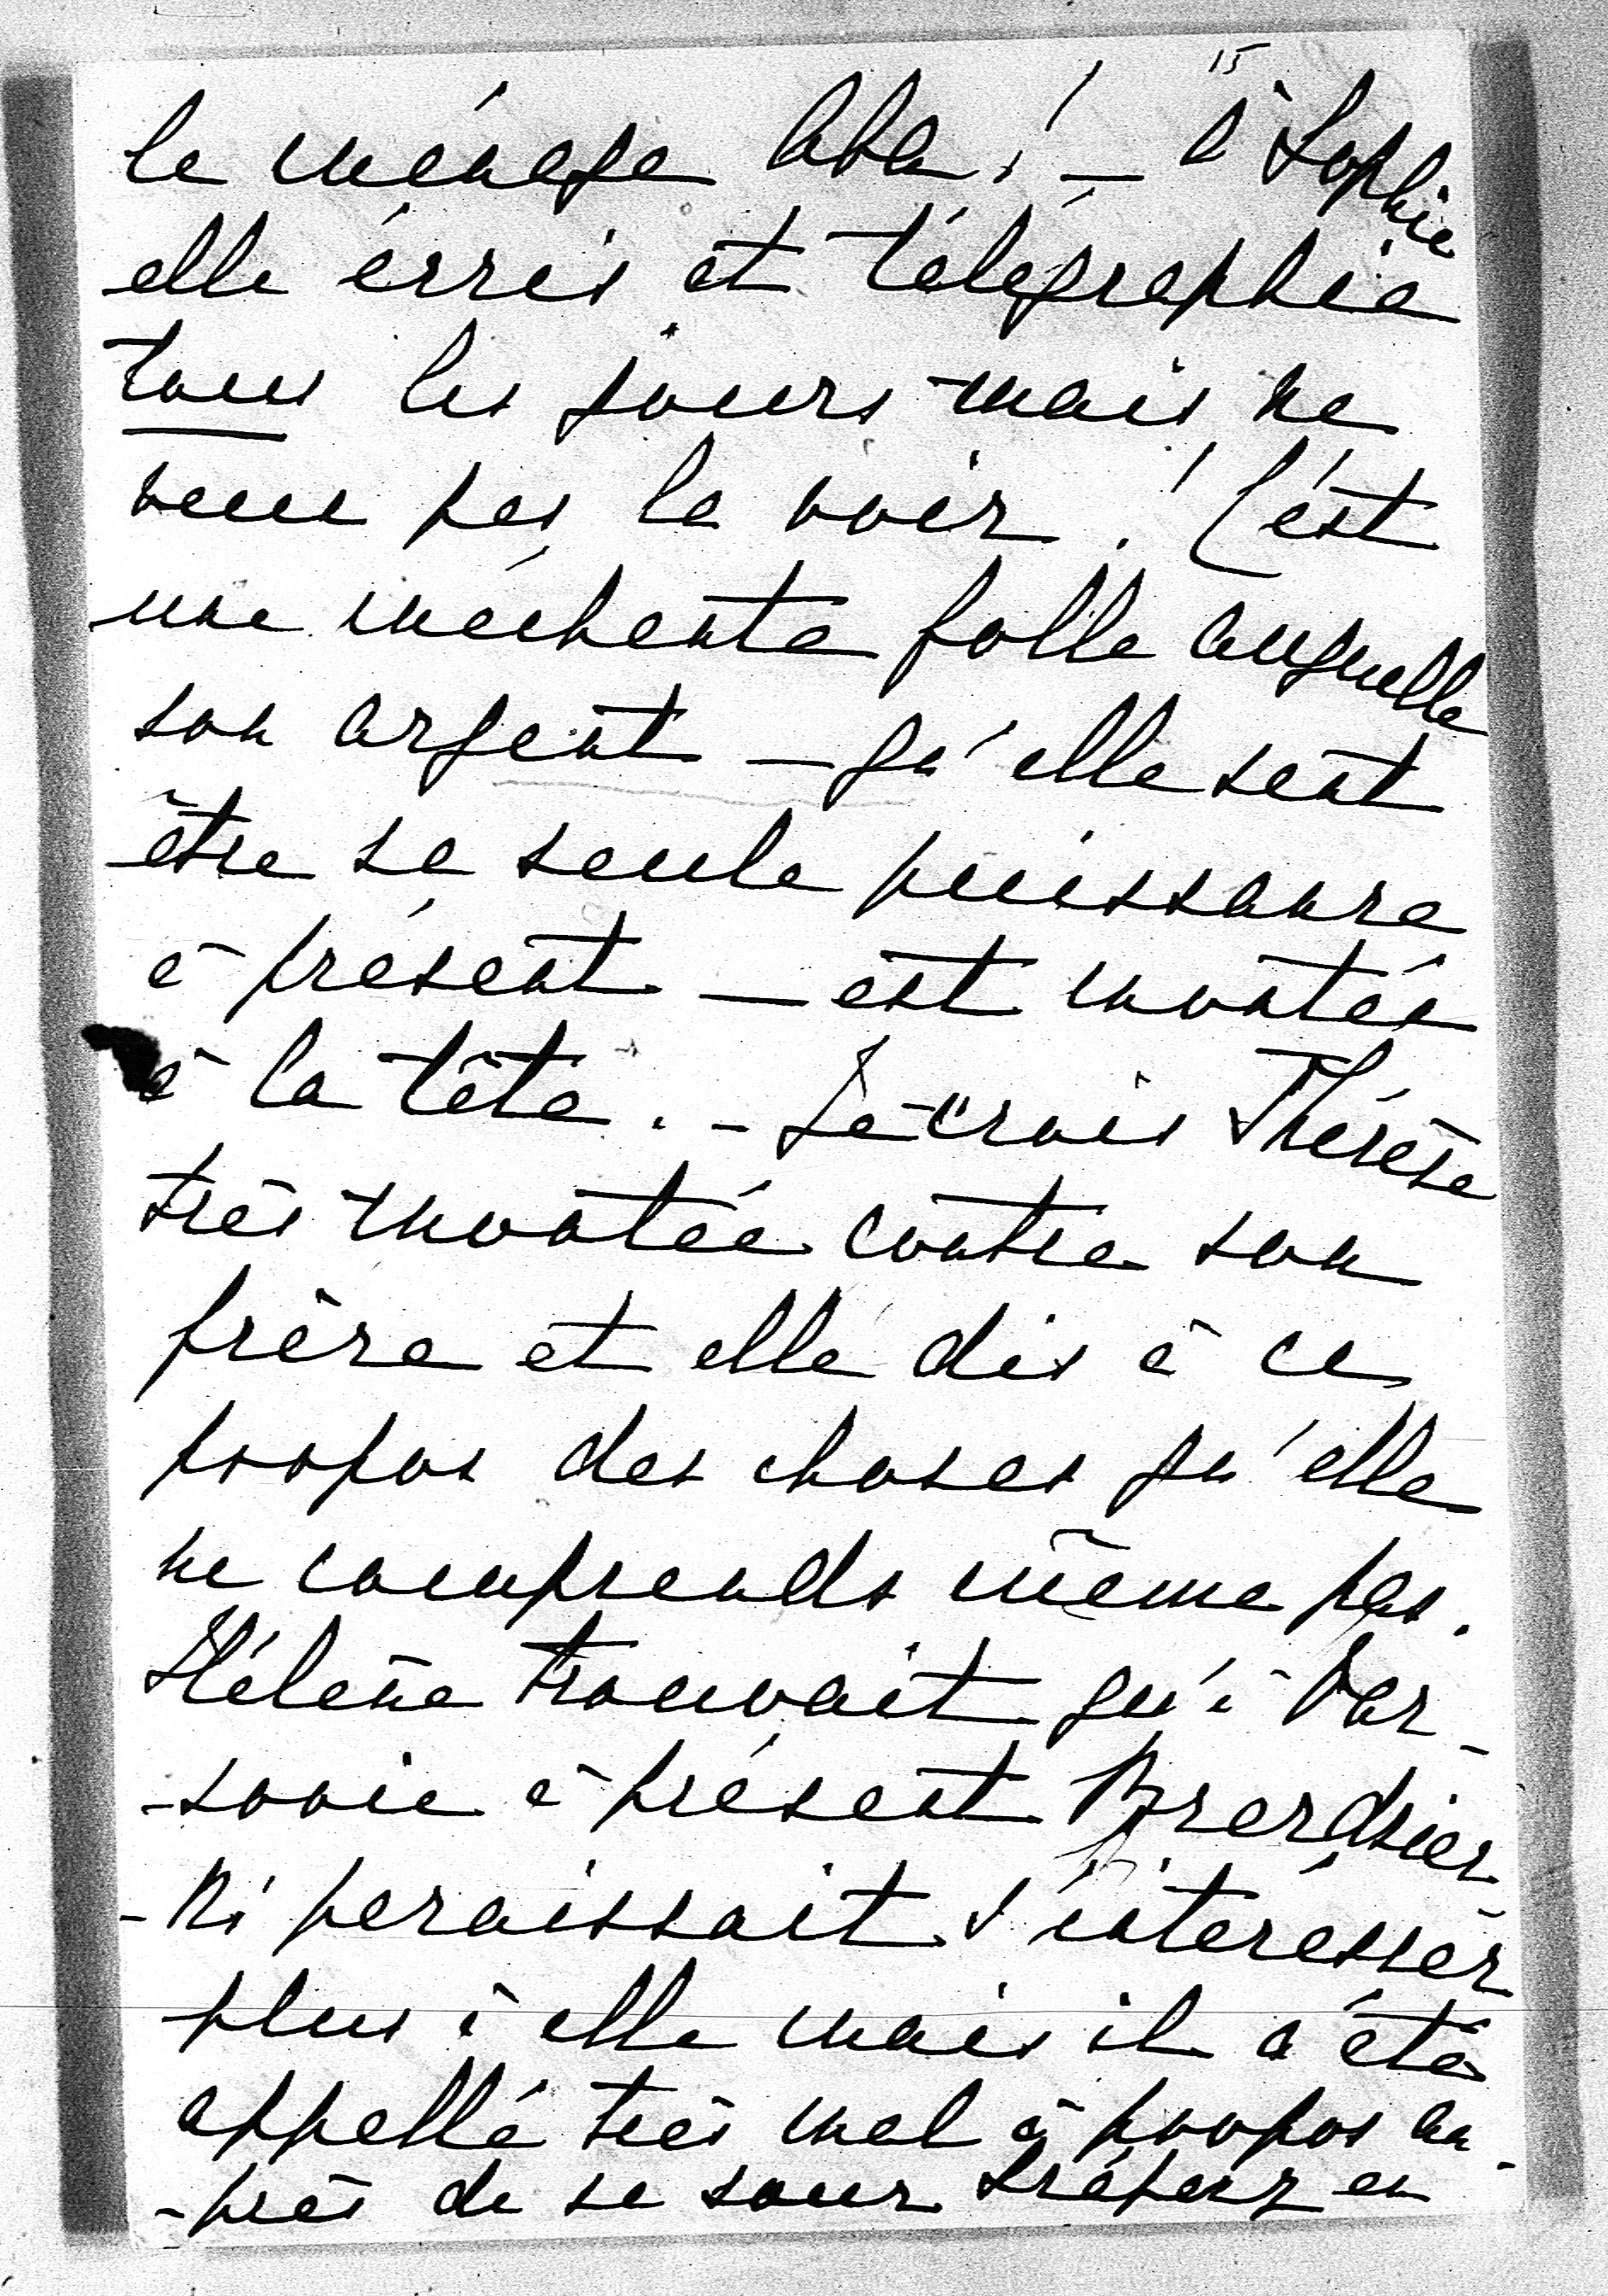 15
le ménage Aba ! — à Sophie
elle écris et télégraphie
tous les jours mais ne
veux pas la voir. ! C'est
une méchante folle auquelle
son argent — qu'elle sent
être sa seule puissance
à présent — est montée
à la tête. — Je crois Thérèse
très montée contre son
frère et elle dis à ce
propos des choses qu'elle
ne comprends même pas.
Hélène trouvait qu'à Var-
-sovie à présent
-ki paraissait s'intéresser
plus à elle mais il a été
appellé très mal à propos au-
-près de sa sœur en